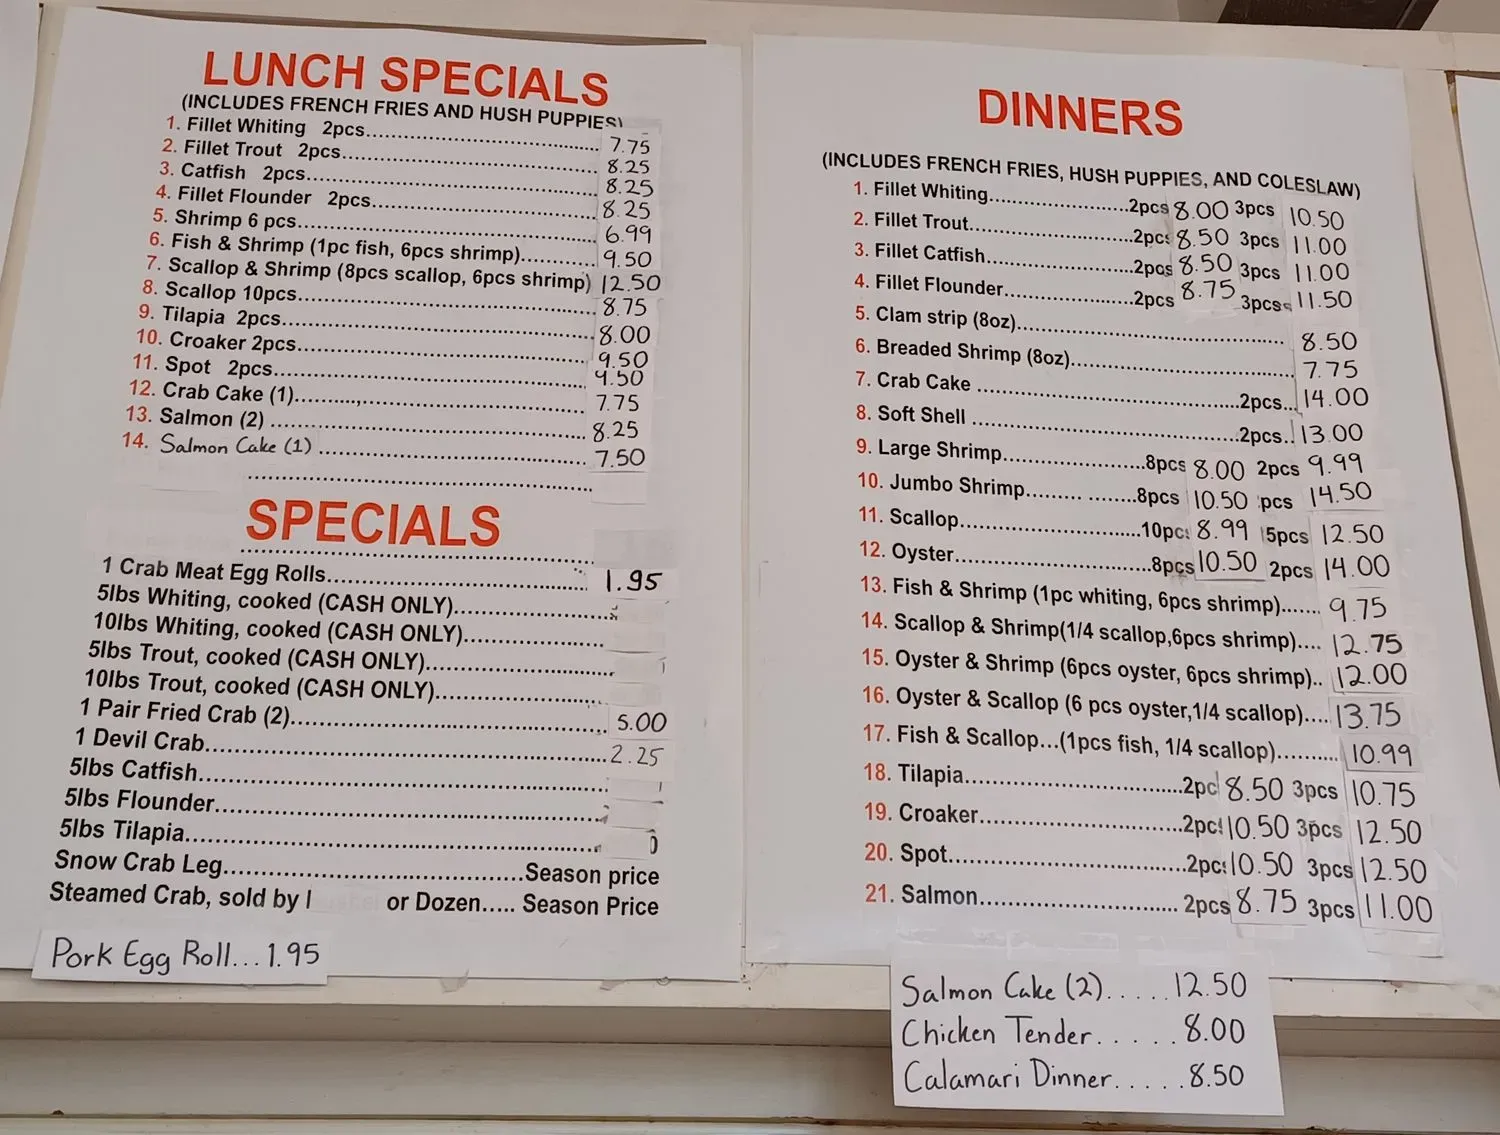 LUNCH SPECIALS
(INCLUDES FRENCH FRIES AND HUSH PUPPIES)
1. Fillet Whiting 2pcs........ 7.75
2. Fillet Trout 2pcs........ 8.25
3. Catfish 2pcs........ 8.25
4. Fillet Flounder 2pcs........ 8.25
5. Shrimp 6 pcs........ 6.99
6. Fish & Shrimp (1pc fish, 6pcs shrimp)........ 9.50
7. Scallop & Shrimp (8pcs scallop, 6pcs shrimp) 12.50
8. Scallop 10pcs........ 8.75
9. Tilapia 2pcs........ 8.00
10. Croaker 2pcs........ 9.50
11. Spot 2pcs........ 9.50
12. Crab Cake (1)........ 7.75
13. Salmon (2) ........ 8.25
14. Salmon Cake (1) ........ 7.50
SPECIALS
1 Crab Meat Egg Rolls........ 1.95
5lbs Whiting, cooked (CASH ONLY)........
10lbs Whiting, cooked (CASH ONLY)........
5lbs Trout, cooked (CASH ONLY)........
10lbs Trout, cooked (CASH ONLY)........
1 Pair Fried Crab (2)........ 5.00
1 Devil Crab........ 2.25
5lbs Catfish........
5lbs Flounder........
5lbs Tilapia........
Snow Crab Leg........Season price
Steamed Crab, sold by or Dozen..... Season Price
Pork Egg Roll...1.95
DINNERS
(INCLUDES FRENCH FRIES, HUSH PUPPIES, AND COLESLAW)
1. Fillet Whiting........2pcs 8.00 3pcs 10.50
2. Fillet Trout........2pcs 8.50 3pcs 11.00
3. Fillet Catfish........2pcs 8.50 3pcs 11.00
4. Fillet Flounder........2pcs 8.75 3pcs 11.50
5. Clam strip (8oz)........ 8.50
6. Breaded Shrimp (8oz)........ 7.75
7. Crab Cake ........2pcs... 14.00
8. Soft Shell ........2pcs.. 13.00
9. Large Shrimp........8pcs 8.00 2pcs 9.99
10. Jumbo Shrimp........ ........8pcs 10.50 pcs 14.50
11. Scallop........10pc 8.99 5pcs 12.50
12. Oyster........8pcs 10.50 2pcs 14.00
13. Fish & Shrimp (1pc whiting, 6pcs shrimp)....... 9.75
14. Scallop & Shrimp(1/4 scallop,6pcs shrimp).... 12.75
15. Oyster & Shrimp (6pcs oyster, 6pcs shrimp).. 12.00
16. Oyster & Scallop (6 pcs oyster,1/4 scallop).... 13.75
17. Fish & Scallop...(1pcs fish, 1/4 scallop).......... 10.99
18. Tilapia........2pc 8.50 3pcs 10.75
19. Croaker........2pc 10.50 3pcs 12.50
20. Spot........2pc 10.50 3pcs 12.50
21. Salmon........ 2pcs 8.75 3pcs 11.00
Salmon Cake (2)..... 12.50
Chicken Tender..... 8.00
Calamari Dinner..... 8.50